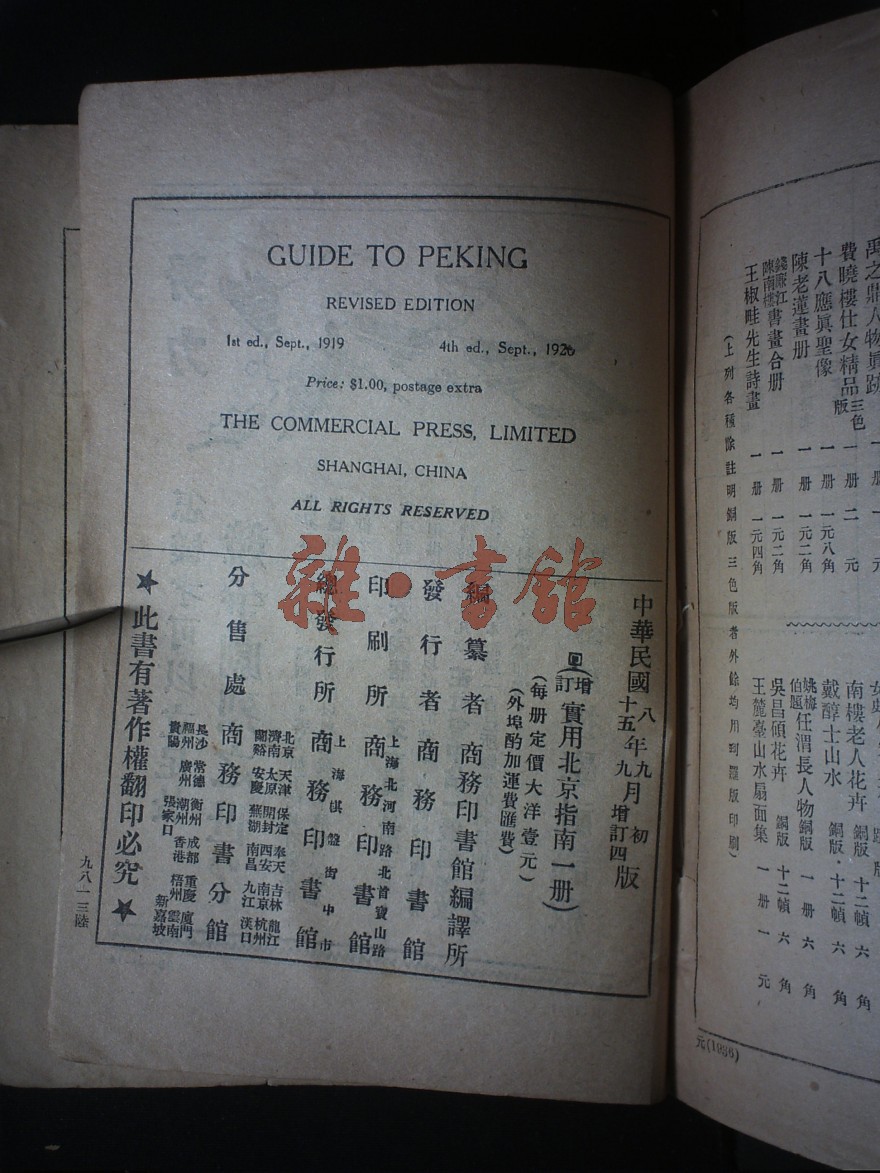 GUIDE TO PEKING
REVISED EDITION
1st ed., Sept., 1919 4th ed., Sept., 1926
Price: $1.00, postage extra
THE COMMERCIAL PRESS, LIMITED
SHANGHAI, CHINA
ALL RIGHTS RESERVED
雜·書館
中華民國八年九月初版
十五年九月增訂四版
(增訂實用北京指南一册)
(每册定價大洋壹元)
(外埠酌加運費匯費)
編纂者 商務印書館編譯所
發行者 商務印書館
印刷所 上海北河南路北首寶山路 商務印書館
總發行所 上海棋盤街中市 商務印書館
分售處 商務印書分館
北京 天津 保定 奉天 吉林 龍江
濟南 太原 開封 西安 南京 杭州
蘭谿 安慶 蕪湖 南昌 九江 漢口
長沙 常德 衡州 成都 重慶 廈門
福州 廣州 潮州 香港 梧州 雲南
貴陽 張家口 新嘉坡
★此書有著作權翻印必究★
九八一三陸
禹之鼎人物眞跡
費曉樓仕女精品 三色版 一册 二元
十八應眞聖像 一册 一元八角
陳老蓮畫册 一册 一元二角
陳南樓書畫合册 一册 一元二角
王椒畦先生詩畫 一册 一元四角
(上列各種除註明銅版三色版者外餘均用珂羅版印刷)
南樓老人花卉 銅版 十二幀 六角
戴醇士山水 銅版·十二幀 六角
姚梅伯題任渭長人物 銅版 一册 六角
吳昌碩花卉 銅版 十二幀 六角
王麓臺山水扇面集 一册 一元
元(1936)